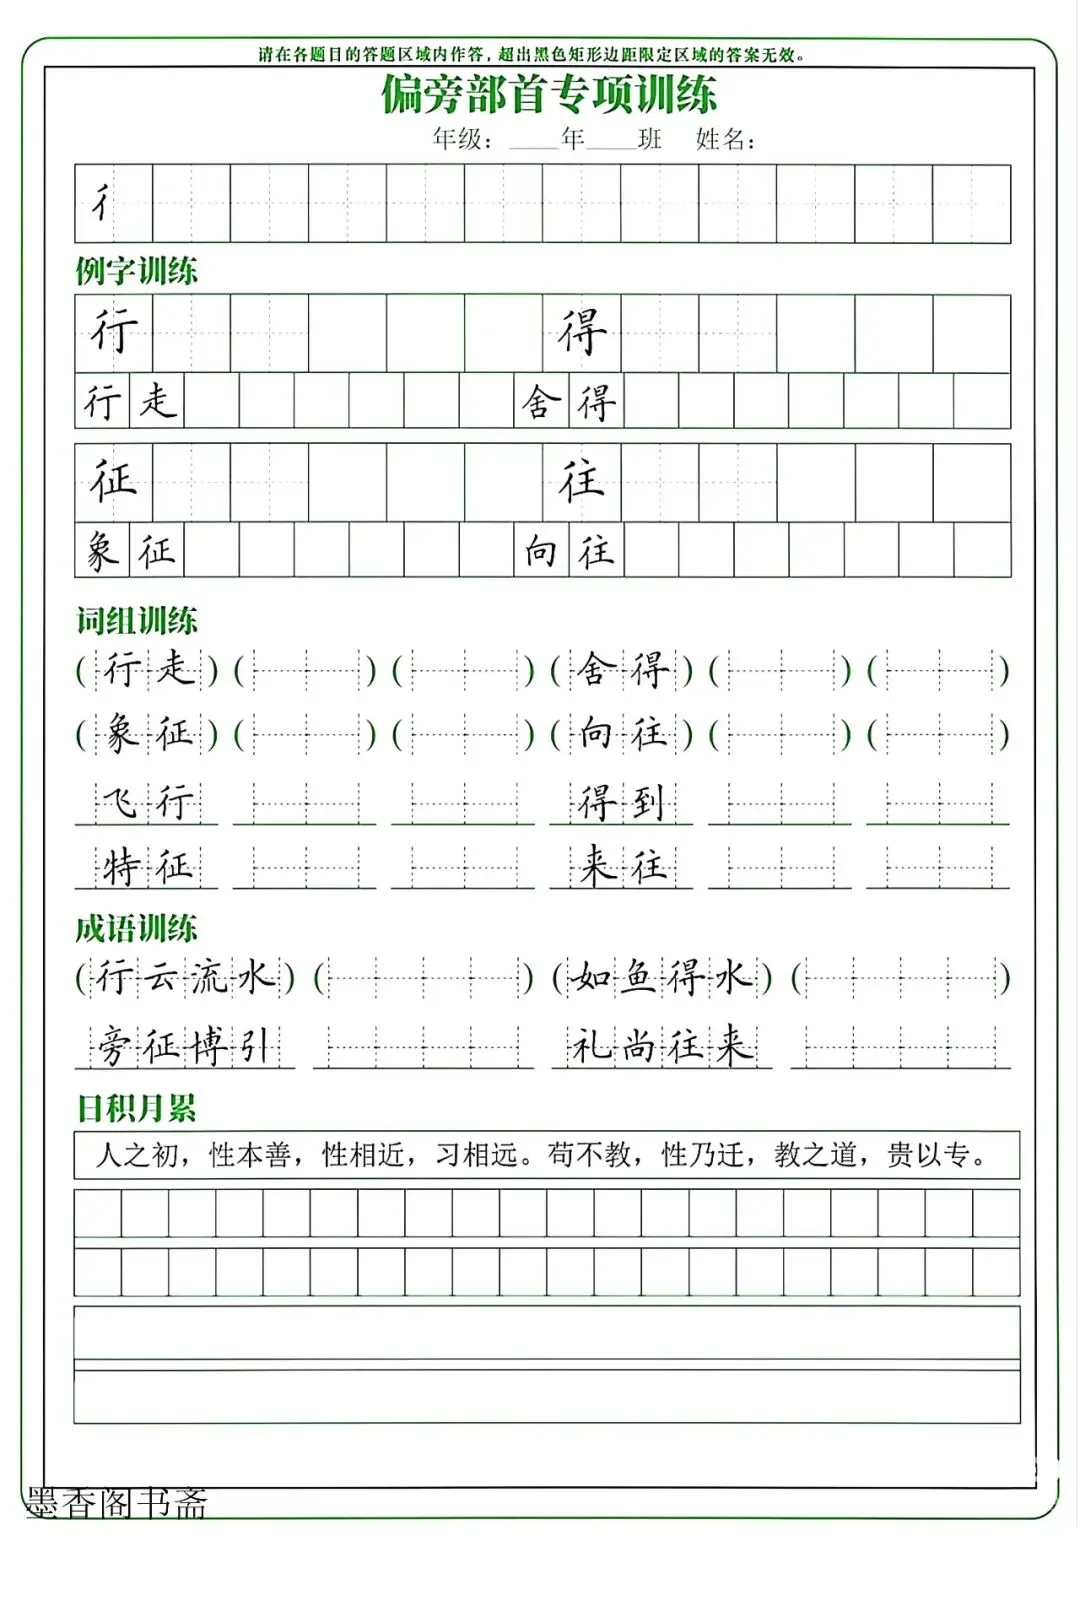 请在各题目的答题区域内作答，超出黑色矩形边距限定区域的答案无效。
偏旁部首专项训练
年级：____年____班 姓名：
彳
例字训练
行 得
行走 舍得
征 往
象征 向往
词组训练
(行走) ( ) ( ) (舍得) ( ) ( )
(象征) ( ) ( ) (向往) ( ) ( )
飞行 得到
特征 来往
成语训练
(行云流水) ( ) (如鱼得水) ( )
旁征博引 礼尚往来
日积月累
人之初，性本善，性相近，习相远。苟不教，性乃迁，教之道，贵以专。
墨香阁书斋